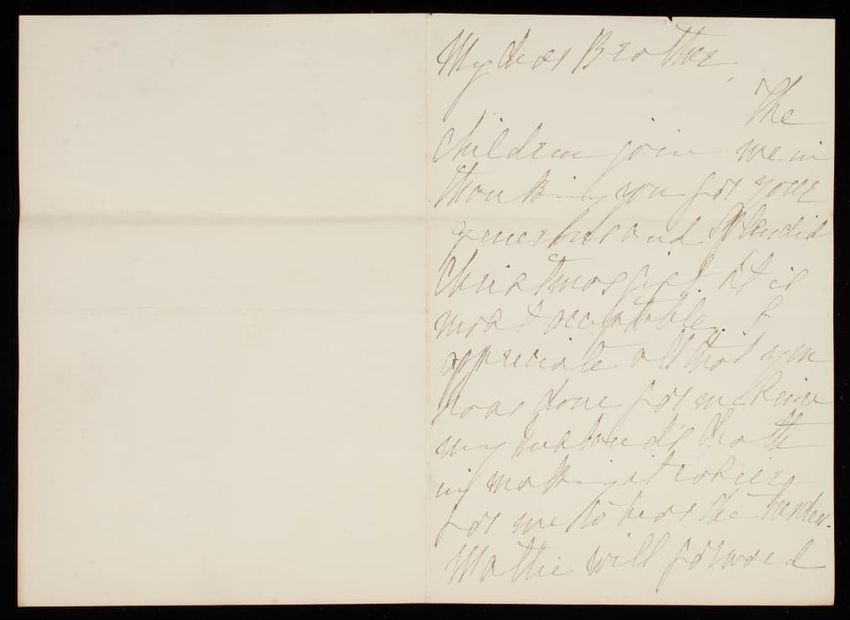 My dear Brother,
The
children join me in
thanking you for your
generous and splendid
Christmas gift. It is
most acceptable. I
appreciate all that you
have done for me since
my husband's death
in making it easier
for me to bear the burden.
Mattie will forward